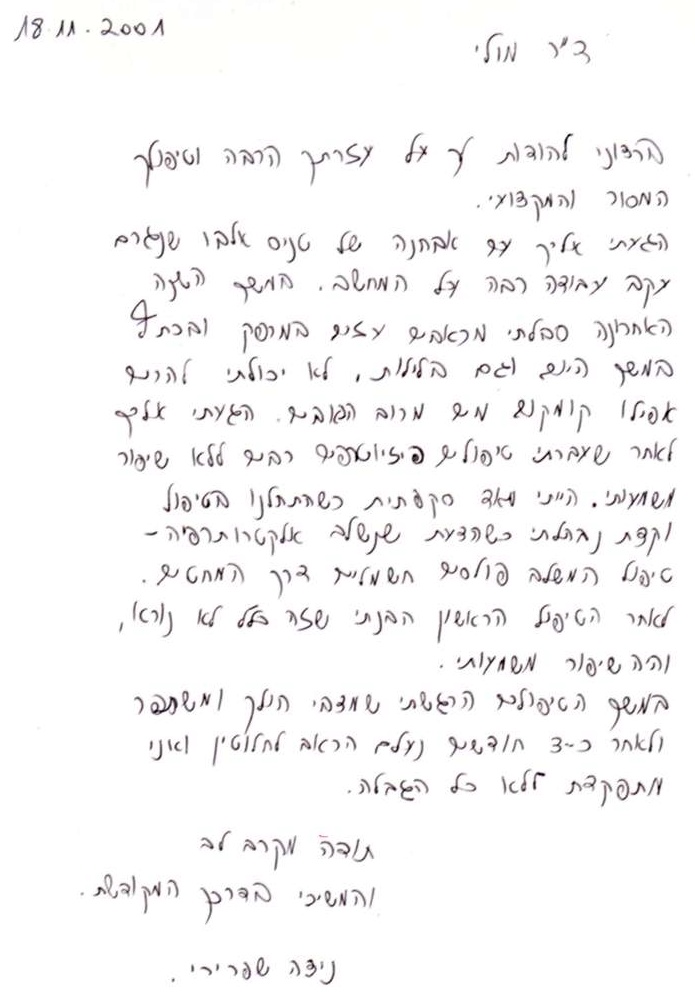 18.11.2001
ד"ר מולי
ברצוני להודות לך על עזרתך הרבה וטיפולך
המסור והמקצועי.
הגעתי אליך עם אבחנה של טניס אלבו שנגרם
עקב עבודה רבה על המחשב. במשך השנה
האחרונה סבלתי מכאבים עזים במרפק ובכתף
במשך היום וגם בלילות, לא יכולתי להרים
אפילו קומקום מים מרוב הכאבים. הגעתי אליך
לאחר שעברתי טיפולים פיזיוטרפים רבים ללא שיפור
משמעותי. הייתי מאד סקפתית כשהתחלנו בטיפול
וקצת נבהלתי כשהצעת שנשלב אלקטרותרפיה -
טיפול המשלב פולסים חשמליים דרך המחטים.
לאחר הטיפול הראשון הבנתי שזה כלל לא נורא,
והיה שיפור משמעותי.
במשך הטיפולים הרגשתי שמצבי הולך ומשתפר
ולאחר כ-3 חודשים נעלם הכאב לחלוטין ואני
מתפקדת ללא כל הגבלה.
תודה מקרב לב
והמשיכי בדרכך המקודשת.
ניצה שפרירי.